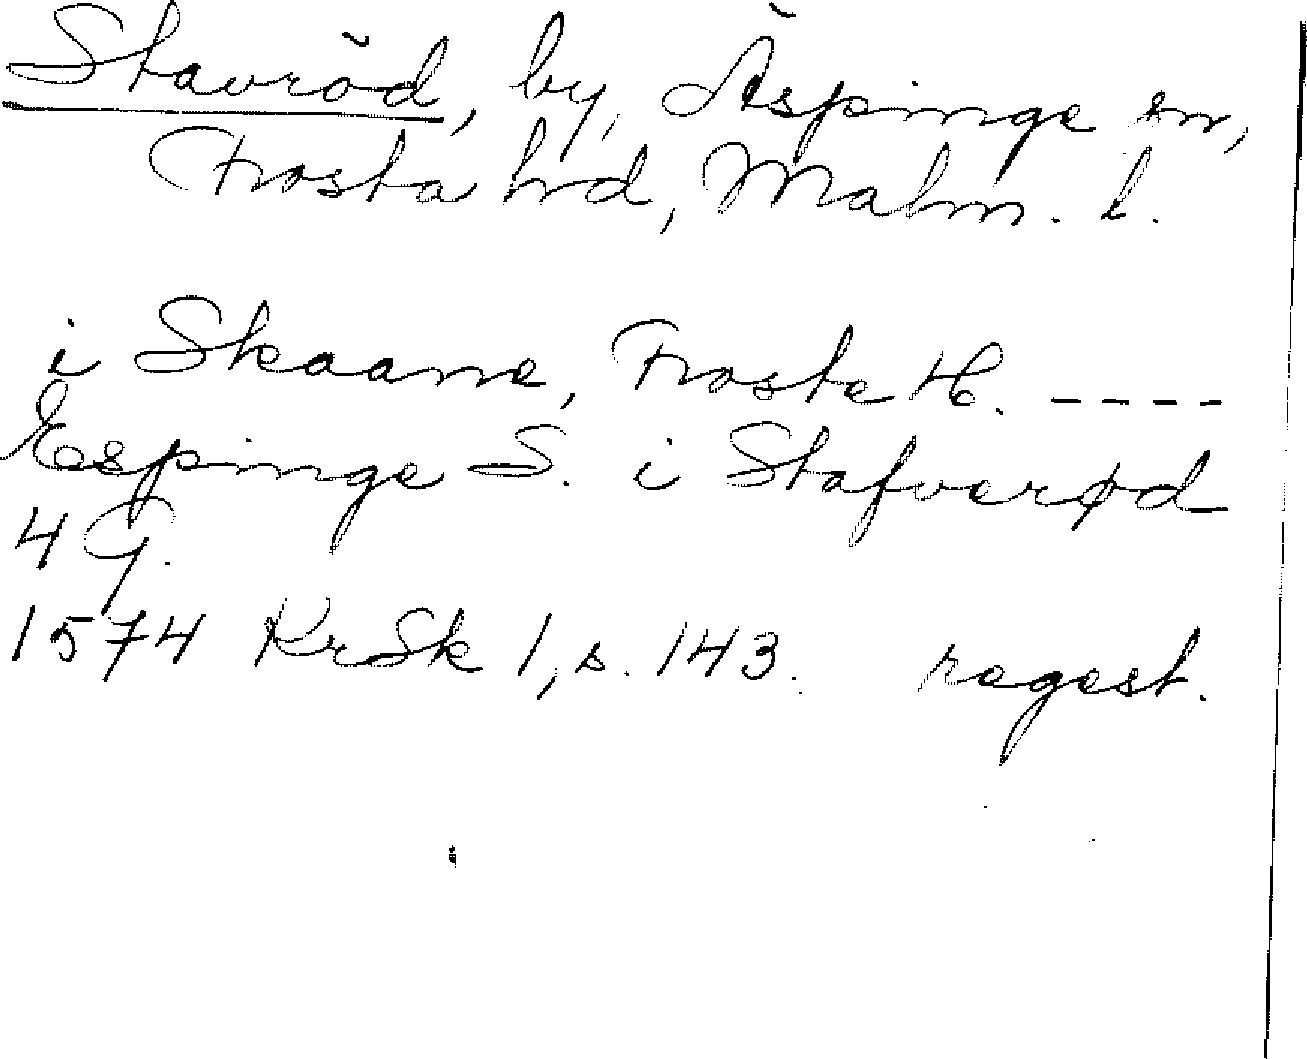 Stavröd, by, Äspinge sn,
Frosta hrd, Malm. l.
i Skaane, Froste H. ----
Espinge S. i Stafverød
4 G.
1574 KrSk 1, s. 143. regest.